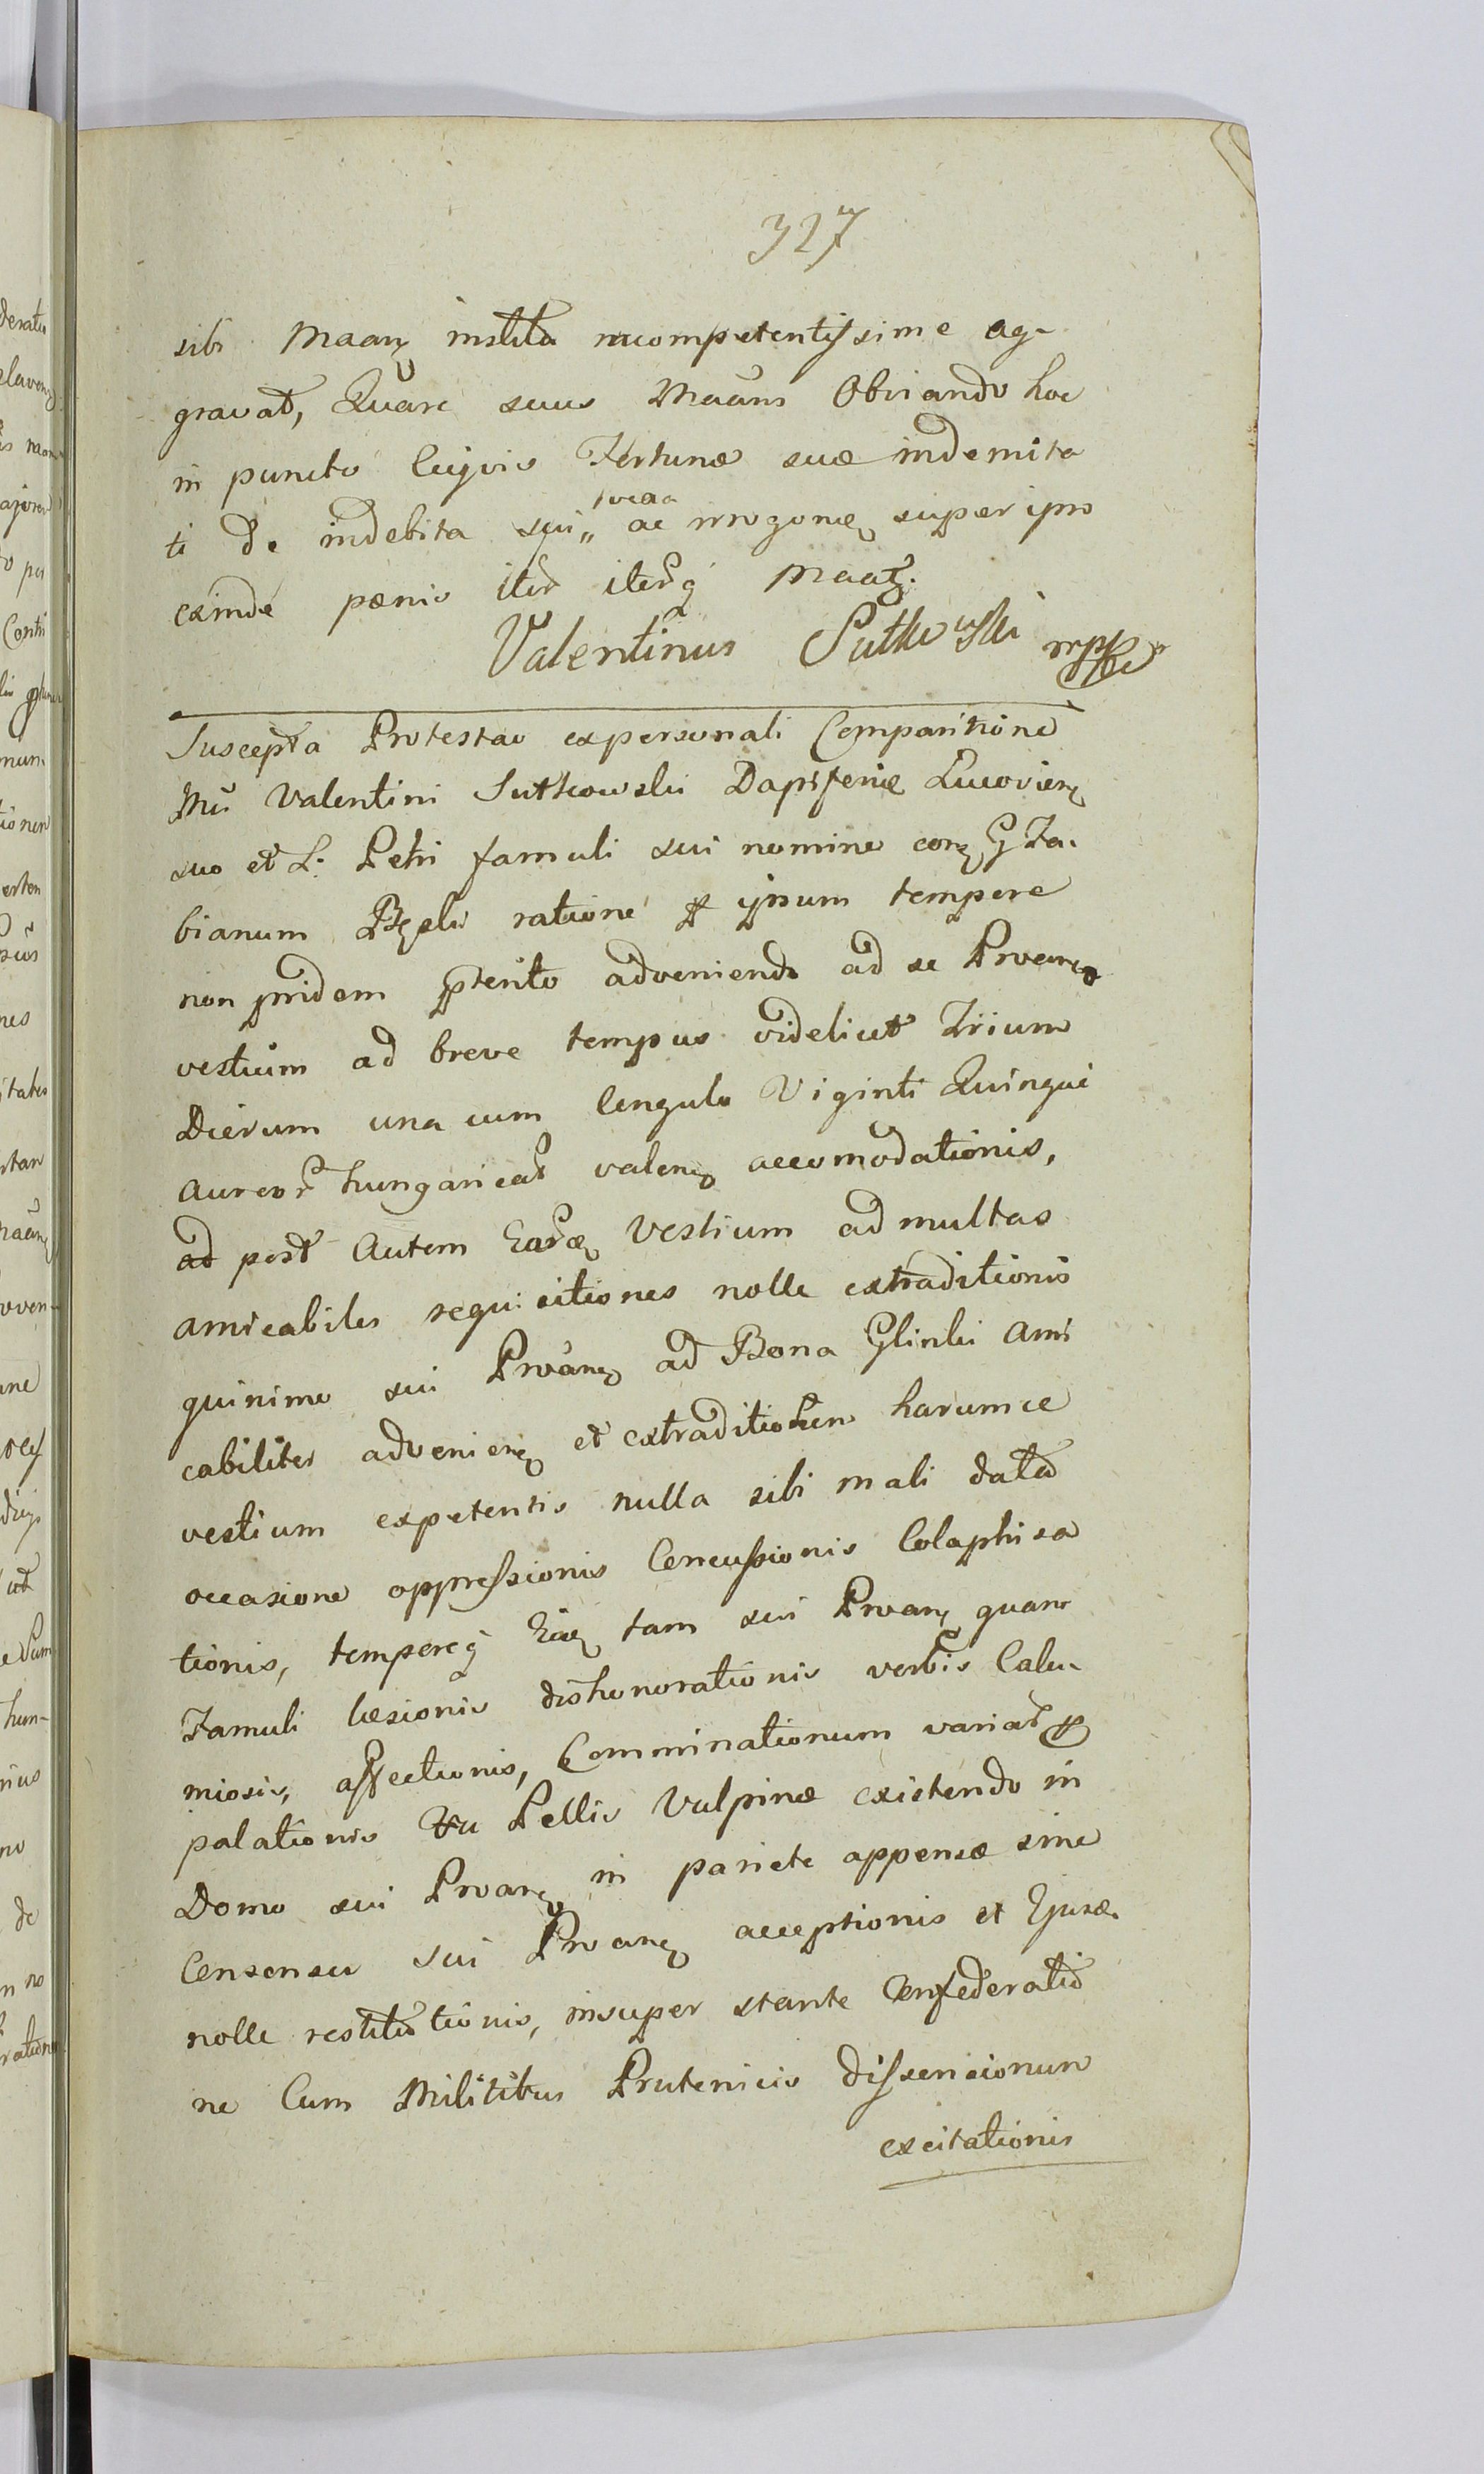 327
sibi Maanӡ instita incompetentissime ag-
gravat, Quare suus Maans Obviando hoc
in puncto Cujvis Fortunæ suæ indemita
ti de indebita sui„ vcaa ac irrogonӡ super ipso
eximde pænis iter iterq Maatӡ.
Valentinus Sutkowski mpp
Suscepta Protestao expersonali Comparitione
Mci Valentini Sutkowski Dapiferiӡ Lucovienӡ
suo et L: Petri famuli sui nomine conӡ G Fa-
bianum ratione p ipsum tempore
non pridem pterito adveniendo ad se Proanӡ
vestium ad breve tempus videlicet Trium
Dierum una cum Cengulo Viginti Quinque
aureor hungaricał valenӡ accomodationis,
ad post Autem Earӡ Vestium ad multas
amicabiles requisitiones nolle extraditionis
quinimo sui Proanӡ ad Bona Glinki Ami
cabiliter advenienӡ et extraditionem harumce
vestium expetentis nulla sibi mali data
occasione oppressionis Concussionis Colaphisa
tionis, temporeq Eaӡ tam sui Proanӡ quam
Famuli læsionis dishonorationis verbis Calu-
miosis, affectionis, Comminationum variar p
palationis Pellis Vulpinæ existendo in
Domo sui Proanӡ in pariete appensæ sine
Censensu sui Proanӡ acceptionis et Ejusӡ.
nolle restitutionis, insuper stante Confederatio
ne Cum Militibus Prutenicis dissensionum
excitationis